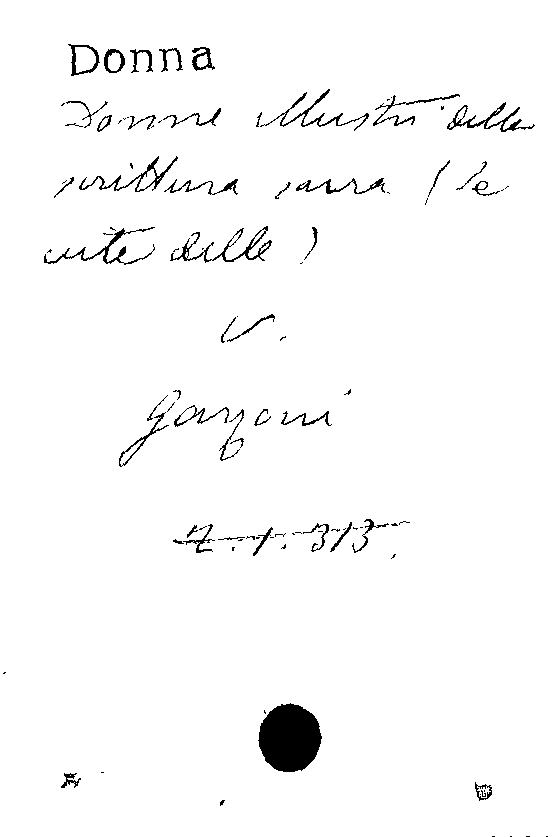 Donna
Donne illustri della
scrittura sacra (le
vite delle)
V.
Garzoni
Z. 1. 313.